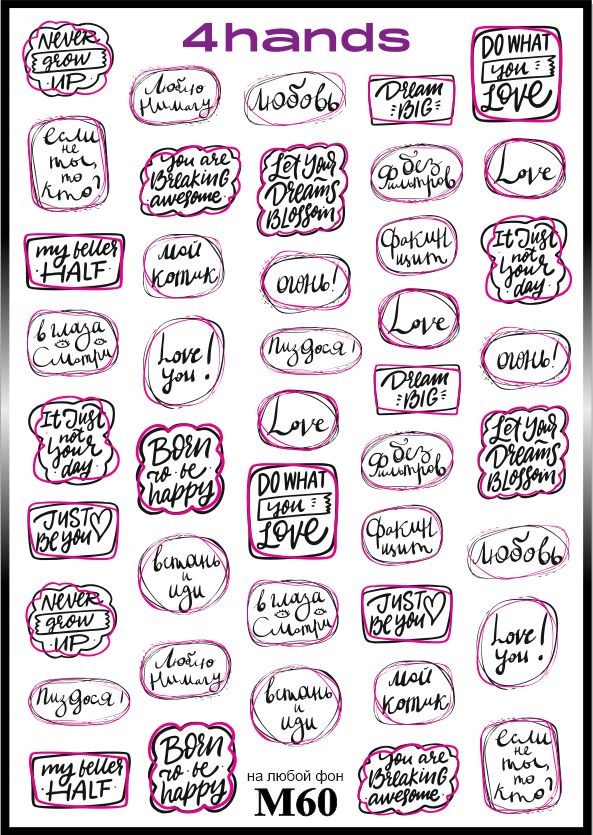 4hands
NEVER
grow
UP
Люблю
Нимагу
Любовь
Dream
BIG
DO WHAT
you
LOVE
если
не
ты,
то
кто?
you are
Breaking
awesome
Let Your
Dreams
Blossom
Ф без
ильтров
Love
my better
HALF
мой
котик
огонь!
факин
щит
It Just
not
your
day
в глаза
Смотри
Love!
you
Пиздося!
Love
огонь!
It Just
not
your
day
Born
to be
happy
Love
Dream
BIG
Let Your
Dreams
Blossom
JUST
Be you
DO WHAT
you
LOVE
Ф без
ильтров
NEVER
grow
UP
встань
и
иди
в глаза
Смотри
факин
щит
Любовь
Пиздося!
Люблю
Нимагу
встань
и
иди
JUST
Be you
Love!
you
my better
HALF
Born
to be
happy
мой
котик
you are
Breaking
awesome
если
не
ты
то
кто?
на любой фон
M60